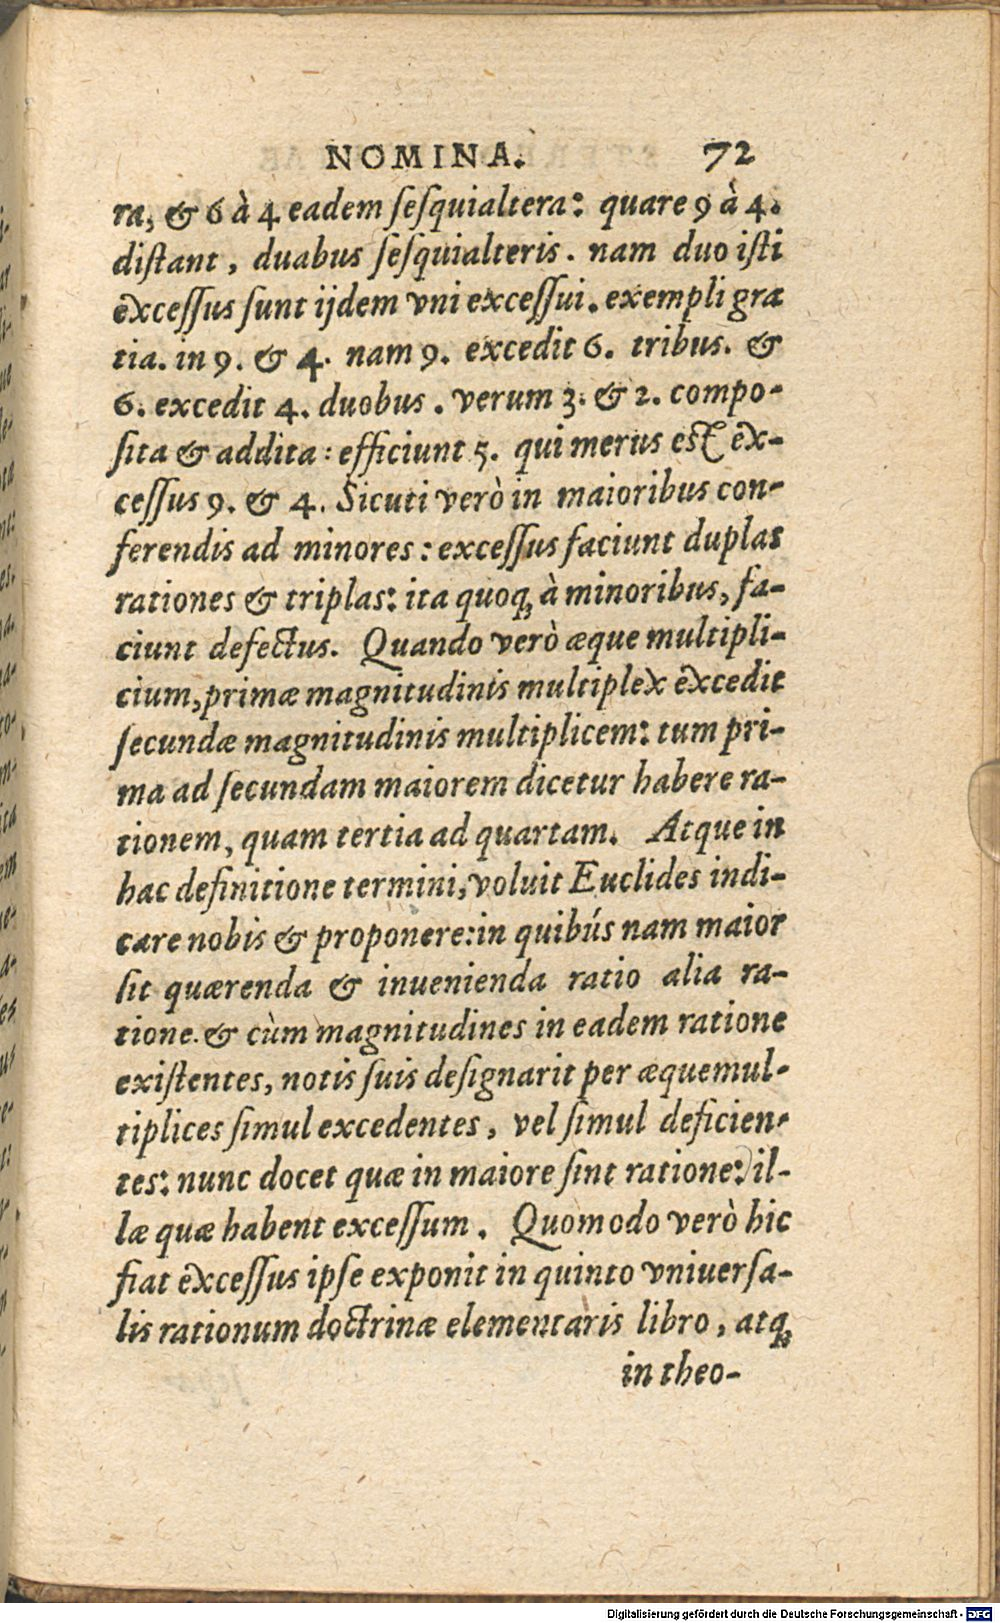 NOMINA. 72
ra, & 6 à 4 eadem ſeſquialtera: quare 9 à 4.
diſtant, duabus ſeſquialteris. nam duo iſti
exceſſus ſunt ijdem vni exceſſui. exempli gra
tia. in 9. & 4. nam 9. excedit 6. tribus. &
6. excedit 4. duobus. verum 3. & 2. compo-
ſita & addita: efficiunt 5. qui merus eſt ex-
ceſſus 9. & 4. Sicuti verò in maioribus con-
ferendis ad minores: exceſſus faciunt duplas
rationes & triplas: ita quoq, à minoribus, fa-
ciunt defectus. Quando verò æque multipli-
cium, primæ magnitudinis multiplex excedit
ſecundæ magnitudinis multiplicem: tum pri-
ma ad ſecundam maiorem dicetur habere ra-
tionem, quam tertia ad quartam. Atque in
hac definitione termini, voluit Euclides indi-
care nobis & proponere: in quibús nam maior
ſit quærenda & inuenienda ratio alia ra-
tione. & cùm magnitudines in eadem ratione
exiſtentes, notis ſuis deſignarit per æquemul-
tiplices ſimul excedentes, vel ſimul deficien-
tes: nunc docet quæ in maiore ſint ratione: il-
læ quæ habent exceſſum. Quomodo verò hic
fiat exceſſus ipſe exponit in quinto vniuerſa-
lis rationum doctrinæ elementaris libro, atq,
in theo-
Digitalisierung gefördert durch die Deutsche Forschungsgemeinschaft - DFG